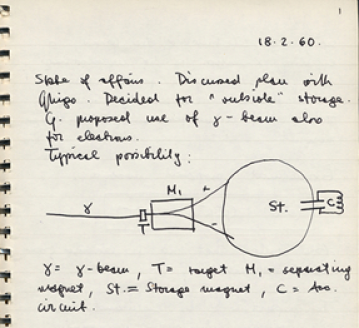 1
18.2.60.
State of affairs. Discussed plan with
Ghigo. Decided for "outside" storage.
G. proposed use of γ-beam also
for electrons.
Typical possibility:
M₁
+
γ
T
-
St.
C
γ = γ-beam, T = target M₁ = separating
magnet, St. = Storage magnet, C = Acc.
circuit.